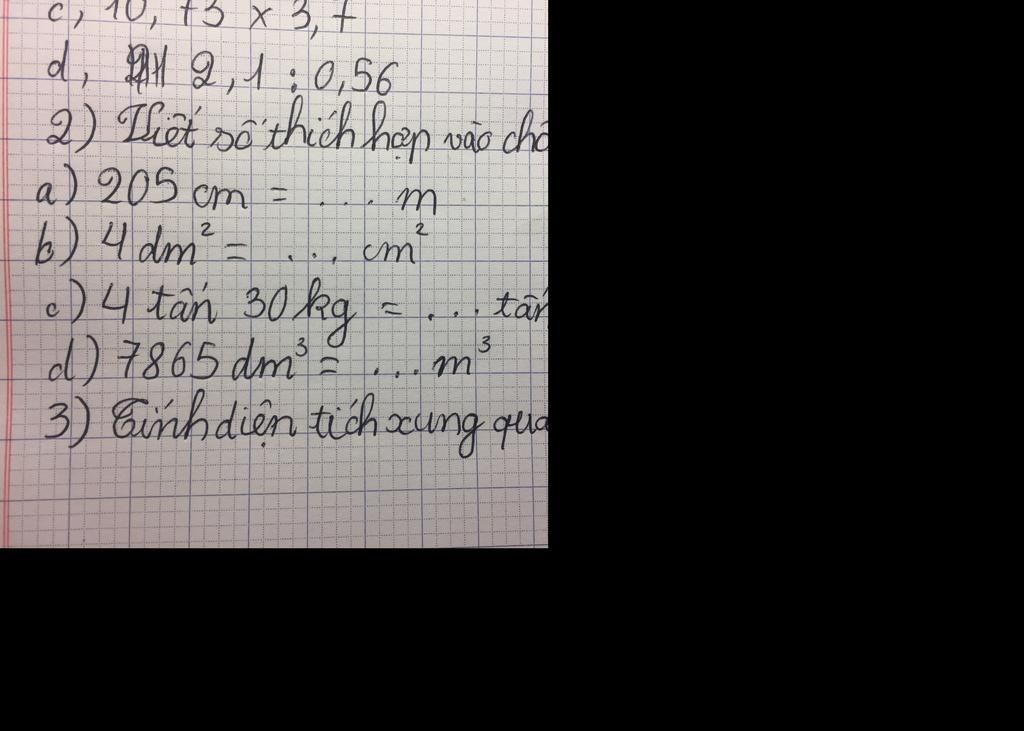 c, 10, 73 x 3, 7
d, 2, 1 : 0,56
2) Viết số thích hợp vào chỗ
a) 205 cm = ... m
b) 4 dm² = ... cm²
c) 4 tấn 30 kg = ... tấn
d) 7865 dm³ = ... m³
3) Tính diện tích xung qua